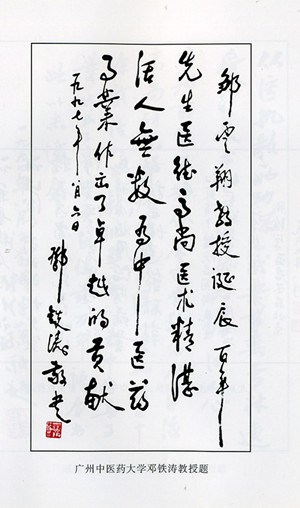 邹云翔教授诞辰百年
先生医德高尚医术精湛
活人無数为中医药
事業作出了卓越的贡献
一九九七年八月六日
邓铁涛敬书
广州中医药大学邓铁涛教授题